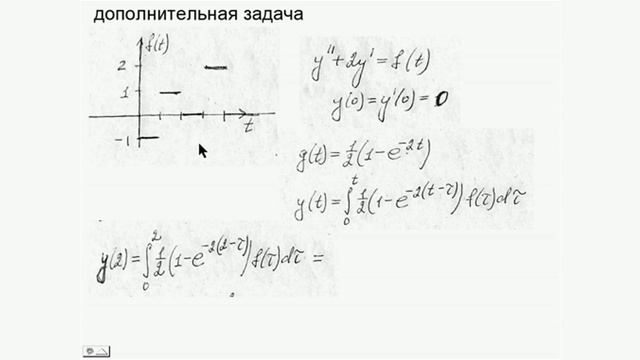 дополнительная задача
f(t)
2
1
-1
t
y'' + 2y' = f(t)
y(0) = y'(0) = 0
g(t) = 1/2 (1 - e^{-2t})
y(t) = ∫_0^t 1/2 (1 - e^{-2(t-τ)}) f(τ) dτ
y(2) = ∫_0^2 1/2 (1 - e^{-2(2-τ)}) f(τ) dτ =